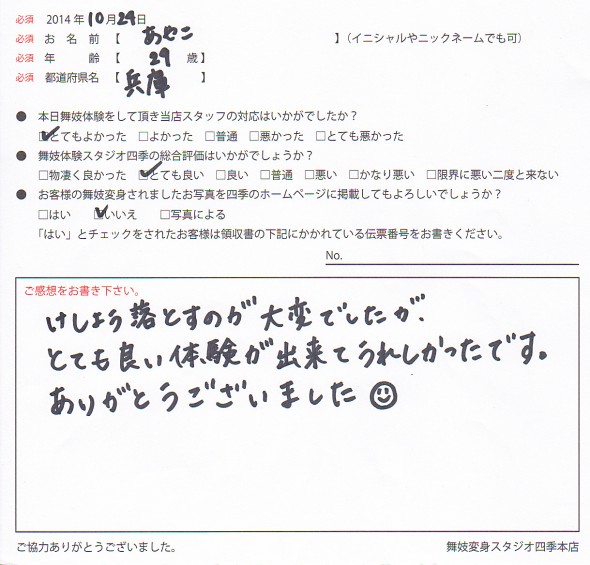 必須 2014年10月29日
必須 お名前【 あやこ 】(イニシャルやニックネームでも可)
必須 年齢【 29 歳】
必須 都道府県名【 兵庫 】
● 本日舞妓体験をして頂き当店スタッフの対応はいかがでしたか?
☑とてもよかった □よかった □普通 □悪かった □とても悪かった
● 舞妓体験スタジオ四季の総合評価はいかがでしょうか?
□物凄く良かった ☑とても良い □良い □普通 □悪い □かなり悪い □限界に悪い二度と来ない
● お客様の舞妓変身されましたお写真を四季のホームページに掲載してもよろしいでしょうか?
□はい ☑いいえ □写真による
「はい」とチェックをされたお客様は領収書の下記にかかれている伝票番号をお書きください。
No.
ご感想をお書き下さい。
けしょう落とすのが大変でしたが、
とても良い体験が出来てうれしかったです。
ありがとうございました☺
ご協力ありがとうございました。 舞妓変身スタジオ四季本店